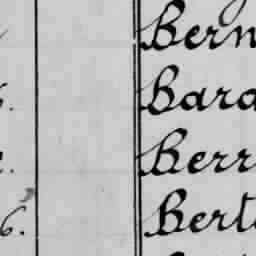 Bern
Bara
Berr
6. Berte